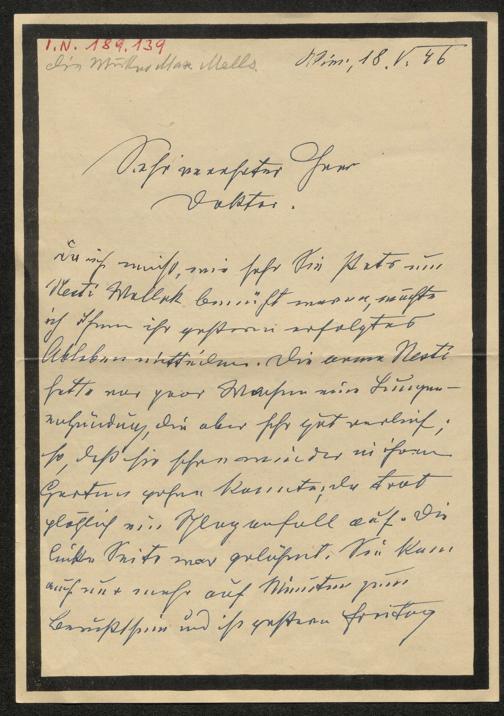 I.N. 189.139
die Mutter Max Mells.
Wien, 18. V. 46
Sehr verehrter Herr
Doktor.
Da ich weiß, wie sehr Sie stets um
Resti Wallek bemüht waren, möchte
ich Ihnen ihr gestern erfolgtes
Ableben mitteilen. Die arme Resti
hatte vor paar Wochen eine Lungen-
entzündung, die aber sehr gut verlief;
so, daß sie schon wieder in ihren
Garten gehen konnte; da trat
plötzlich ein Schlaganfall auf. Die
linke Seite war gelähmt. Sie kam
auf nur mehr auf Minuten zum
Bewußtsein und ist gestern Freitag